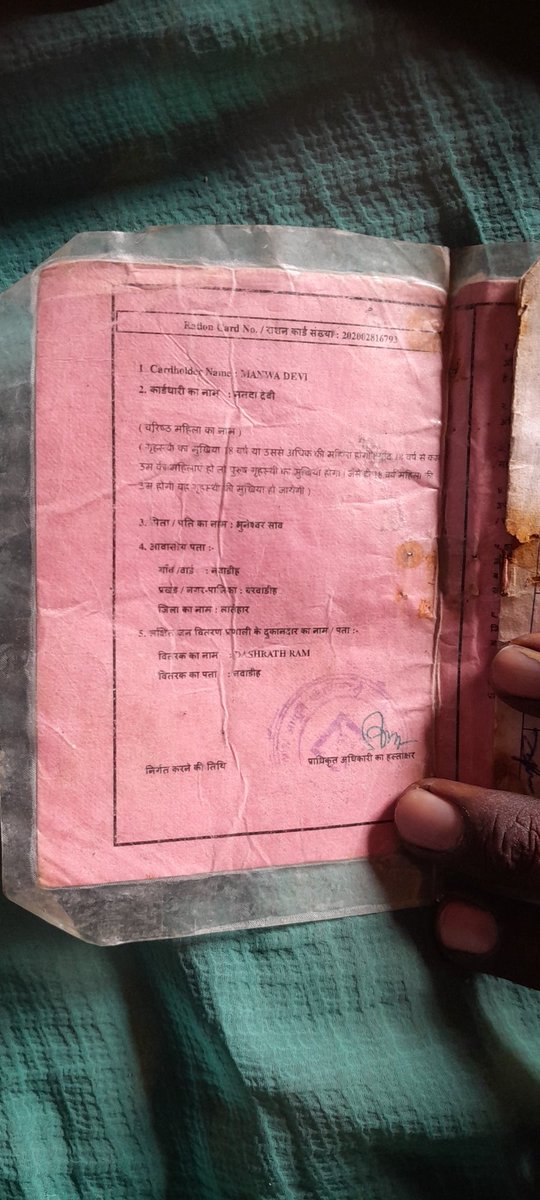 Ration Card No. / राशन कार्ड संख्या : 202002816793
1. Cardholder Name : MANWA DEVI
2. कार्डधारी का नाम : देवी
( वरिष्ठ महिला का नाम )
( गृहस्थी का मुखिया 18 वर्ष या उससे अधिक की महिला होगी 18 वर्ष से कम
उम्र की महिलाएं हो तो पुरुष गृहस्थी का मुखिया होगा। जैसे ही 18 वर्ष महिला की
उम्र होगी वह गृहस्थी की मुखिया हो जायेगी )
3. पिता / पति का नाम : भुनेश्वर साव
4. आवासीय पता :-
गाँव /वार्ड : नवाडीह
प्रखंड / नगर-पालिका : बरवाडीह
जिला का नाम : लातेहार
5. लक्षित जन वितरण प्रणाली के दुकानदार का नाम / पता :-
वितरक का नाम : DASHRATH RAM
वितरक का पता : नवाडीह
निर्गत करने की तिथि
प्राधिकृत अधिकारी का हस्ताक्षर